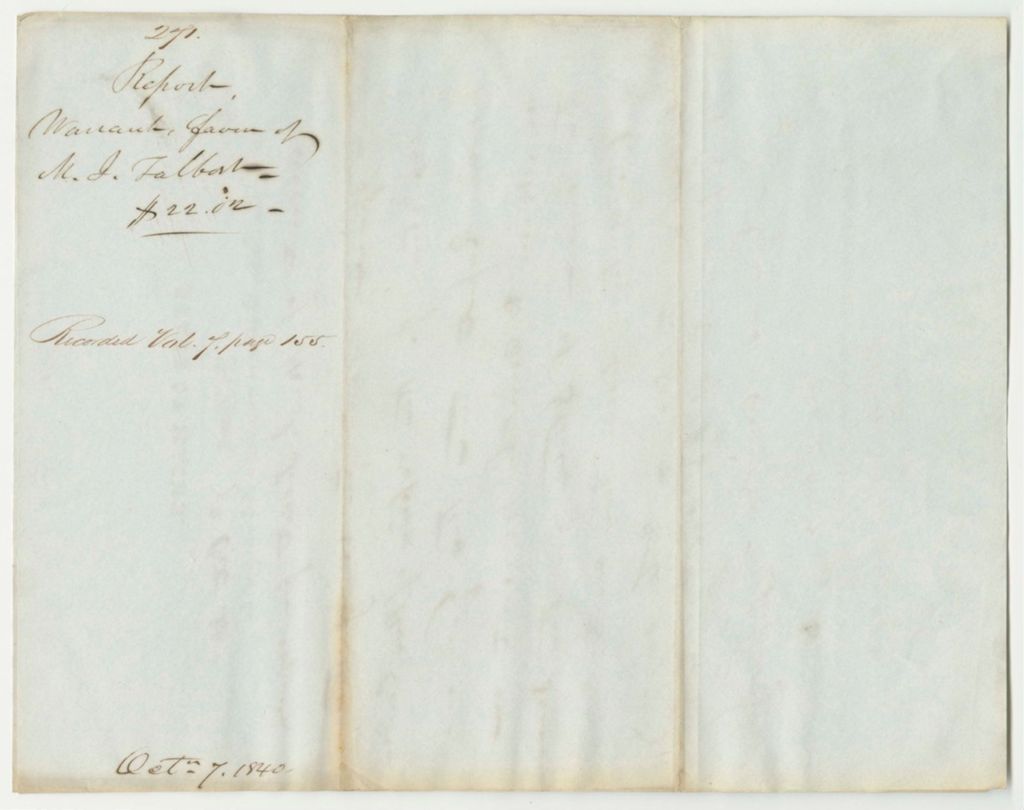 271.
Report
Warrant, favor of
M. J. Talbot
$22.02
Recorded Vol. 7. page 155.
Octr 7. 1840